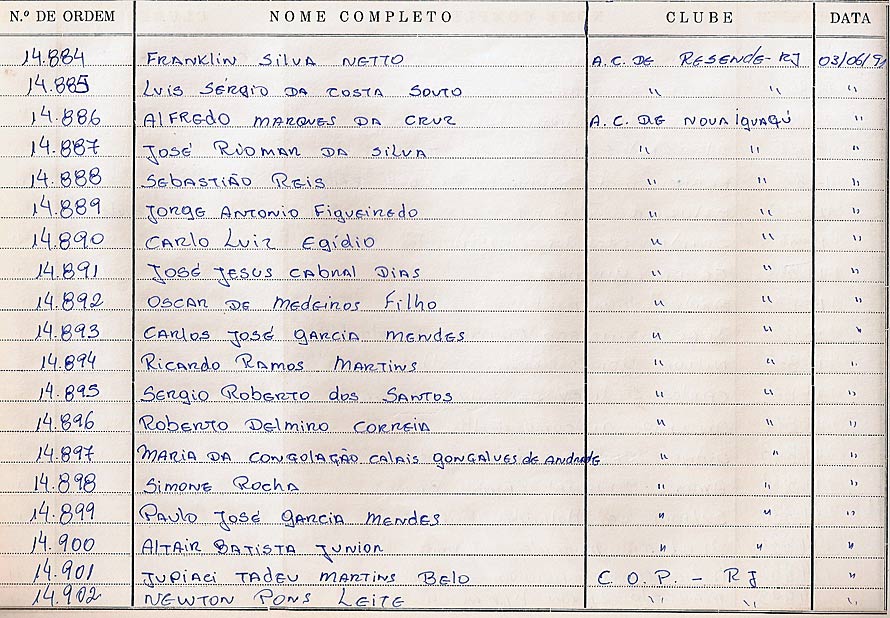 N.º DE ORDEM NOME COMPLETO CLUBE DATA
14.884 FRANKLIN SILVA NETTO A.C. DE RESENDE-RJ 03/06/91
14.885 LUIS SÉRGIO DA COSTA SOUTO " " "
14.886 ALFREDO MARQUES DA CRUZ A.C. DE NOVA IGUAÇÚ "
14.887 JOSÉ RIOMAR DA SILVA " " "
14.888 SEBASTIÃO REIS " " "
14.889 JORGE ANTONIO FIGUEIREDO " " "
14.890 CARLO LUIZ EGÍDIO " " "
14.891 JOSÉ JESUS CABRAL DIAS " " "
14.892 OSCAR DE MEDEIROS FILHO " " "
14.893 CARLOS JOSÉ GARCIA MENDES " " "
14.894 RICARDO RAMOS MARTINS " " "
14.895 SERGIO ROBERTO DOS SANTOS " " "
14.896 ROBERTO DELMIRO CORREIA " " "
14.897 MARIA DA CONÇOLAÇÃO CALAIS GONÇALVES DE ANDRADE " " "
14.898 SIMONE ROCHA " " "
14.899 PAULO JOSÉ GARCIA MENDES " " "
14.900 ALTAIR BATISTA JUNIOR " " "
14.901 JUPIACI TADEU MARTINS BELO C.O.P. - RJ "
14.902 NEWTON PONS LEITE " " "